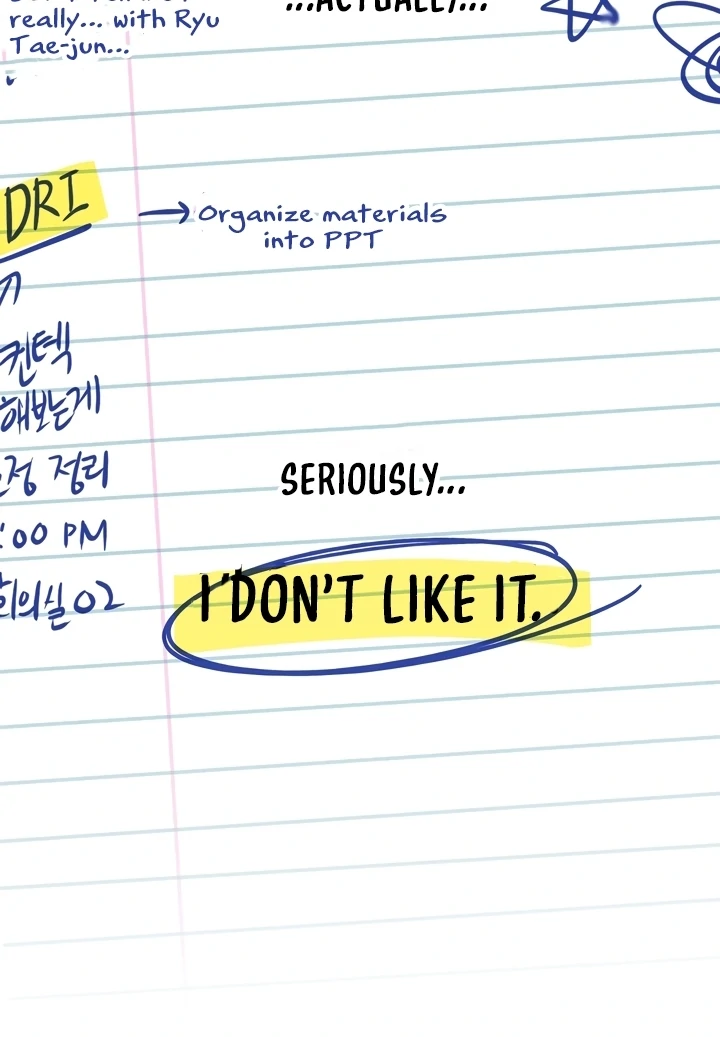 really... with Ryu
Tae-jun...
...ACTUALLY...
DRI
→ Organize materials
into PPT
컨텍
해보는게
정리
:00 PM
회의실 02
SERIOUSLY...
I DON'T LIKE IT.